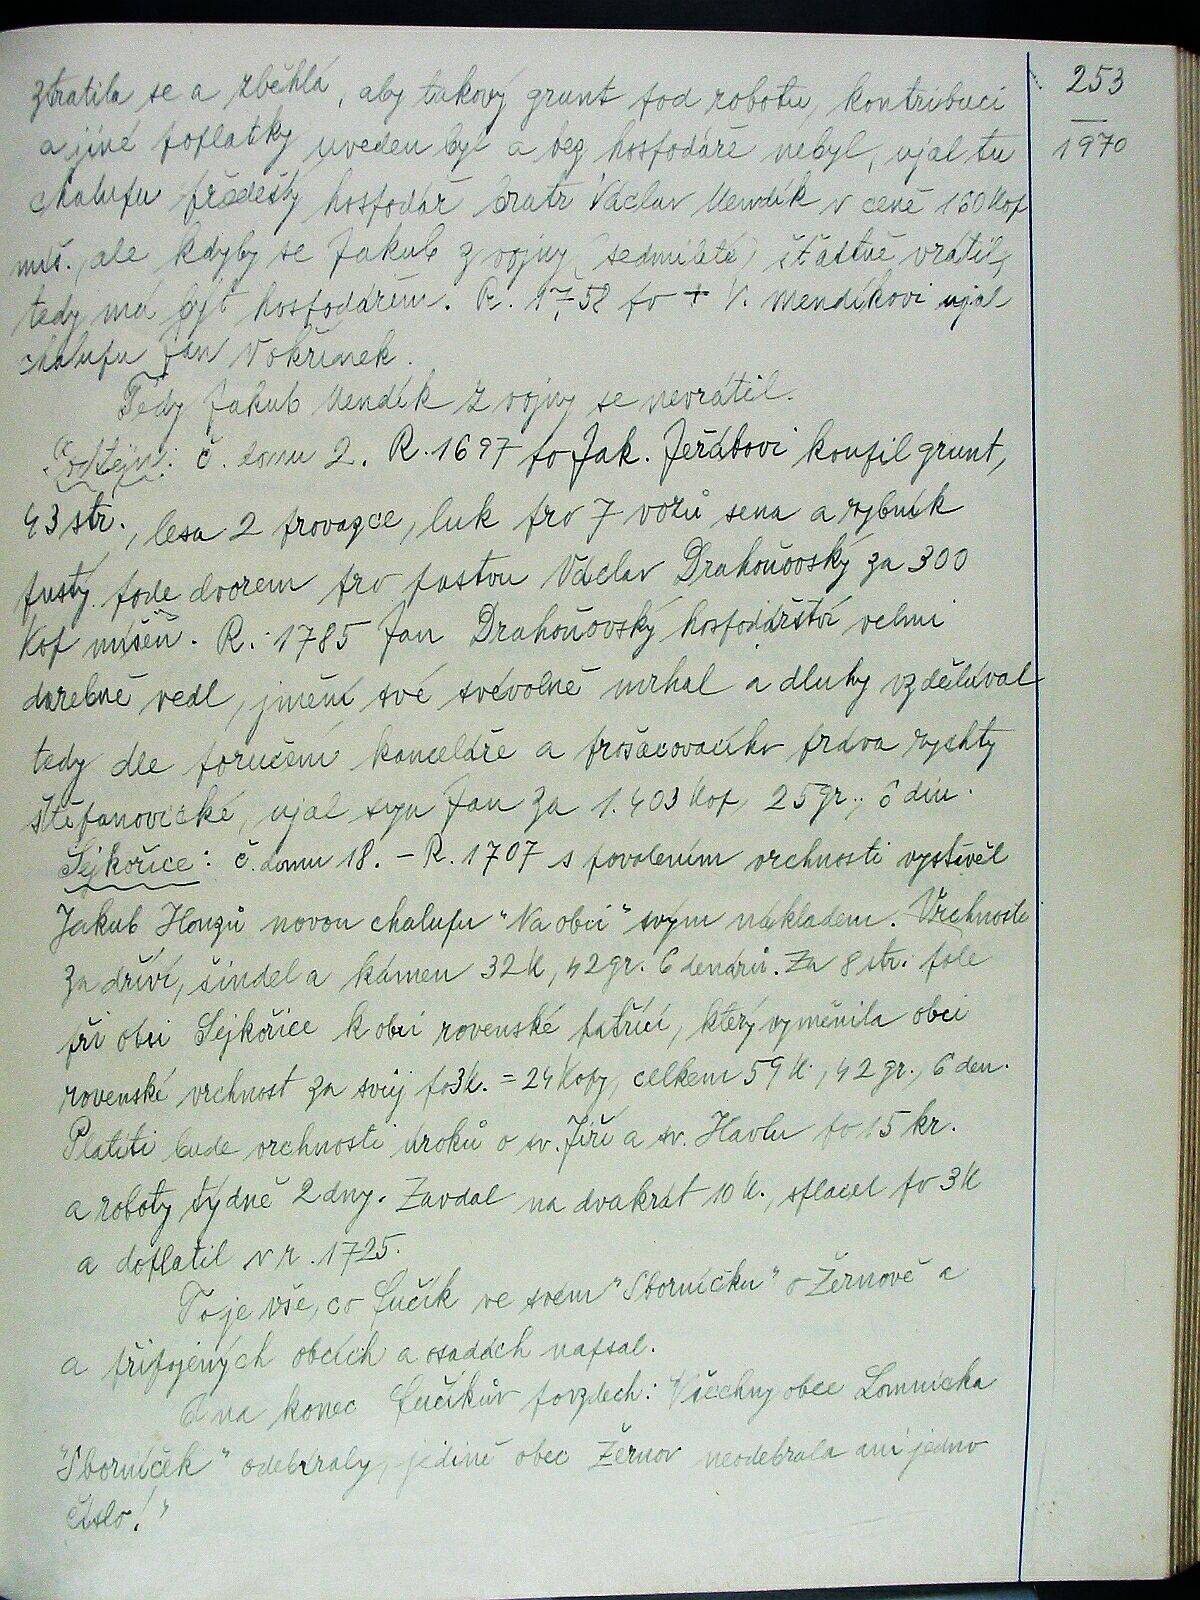 253
1970
ztratila se a zběhla, aby takový grunt pod robotu, kontribuci
a jiné poplatky uveden byl a bez hospodáře nebyl, ujal tu
chalupu předešlý hospodář bratr Václav Mendík v ceně 160 kop
míš., ale kdyby se Jakub z vojny (sedmileté) šťastně vrátil,
tedy má býti hospodářem. R. 1758 po + V. Mendíkovi ujal
chalupu Jan Vokřínek.
Tedy Jakub Mendík z vojny se nevrátil.
č. domu 2. R. 1697 po Jak. Jeřábovi koupil grunt,
43 str., lesa 2 provazce, luk pro 7 vozů sena a rybník
pustý pode dvorem pro pastvu Václav Drahoňovský za 300
kop míšeň. R. 1785 Jan Drahoňovský hospodářství velmi
darebně vedl, jmění své svévolně mrhal a dluhy vzdělával
tedy dle poručení kanceláře a prošacovacího práva rychty
Štěpanovické, ujal syn Jan za 1.403 kop, 25 gr., 6 din.
Sejkořice: č. domu 18. – R. 1707 s povolením vrchnosti vystavěl
Jakub Honzů novou chalupu "Na obci" svým nákladem. Vrchnosti
za dříví, šindel a kámen 32 k, 42 gr. 6 denárů. Za 8 str. pole
při obci Sejkořice k obci rovenské patřící, který vyměnila obci
rovenské vrchnost za svůj po 3k. = 24 kopy, celkem 59 k., 42 gr., 6 den.
Platiti bude vrchnosti úroků o sv. Jiří a sv. Havlu po 15 kr.
a roboty týdně 2 dny. Zavdal na dvakrát 10 k., splácel po 3 k
a doplatil v r. 1725.
To je vše, co Fučík ve svém "Sborníčku" o Žernově a
a připojených obcích a osadách napsal.
A na konec Fučíkův povzdech: "Všechny obce Lomnicka
"Sborníček" odebíraly, jedině obec Žernov neodebrala ani jedno
číslo!"